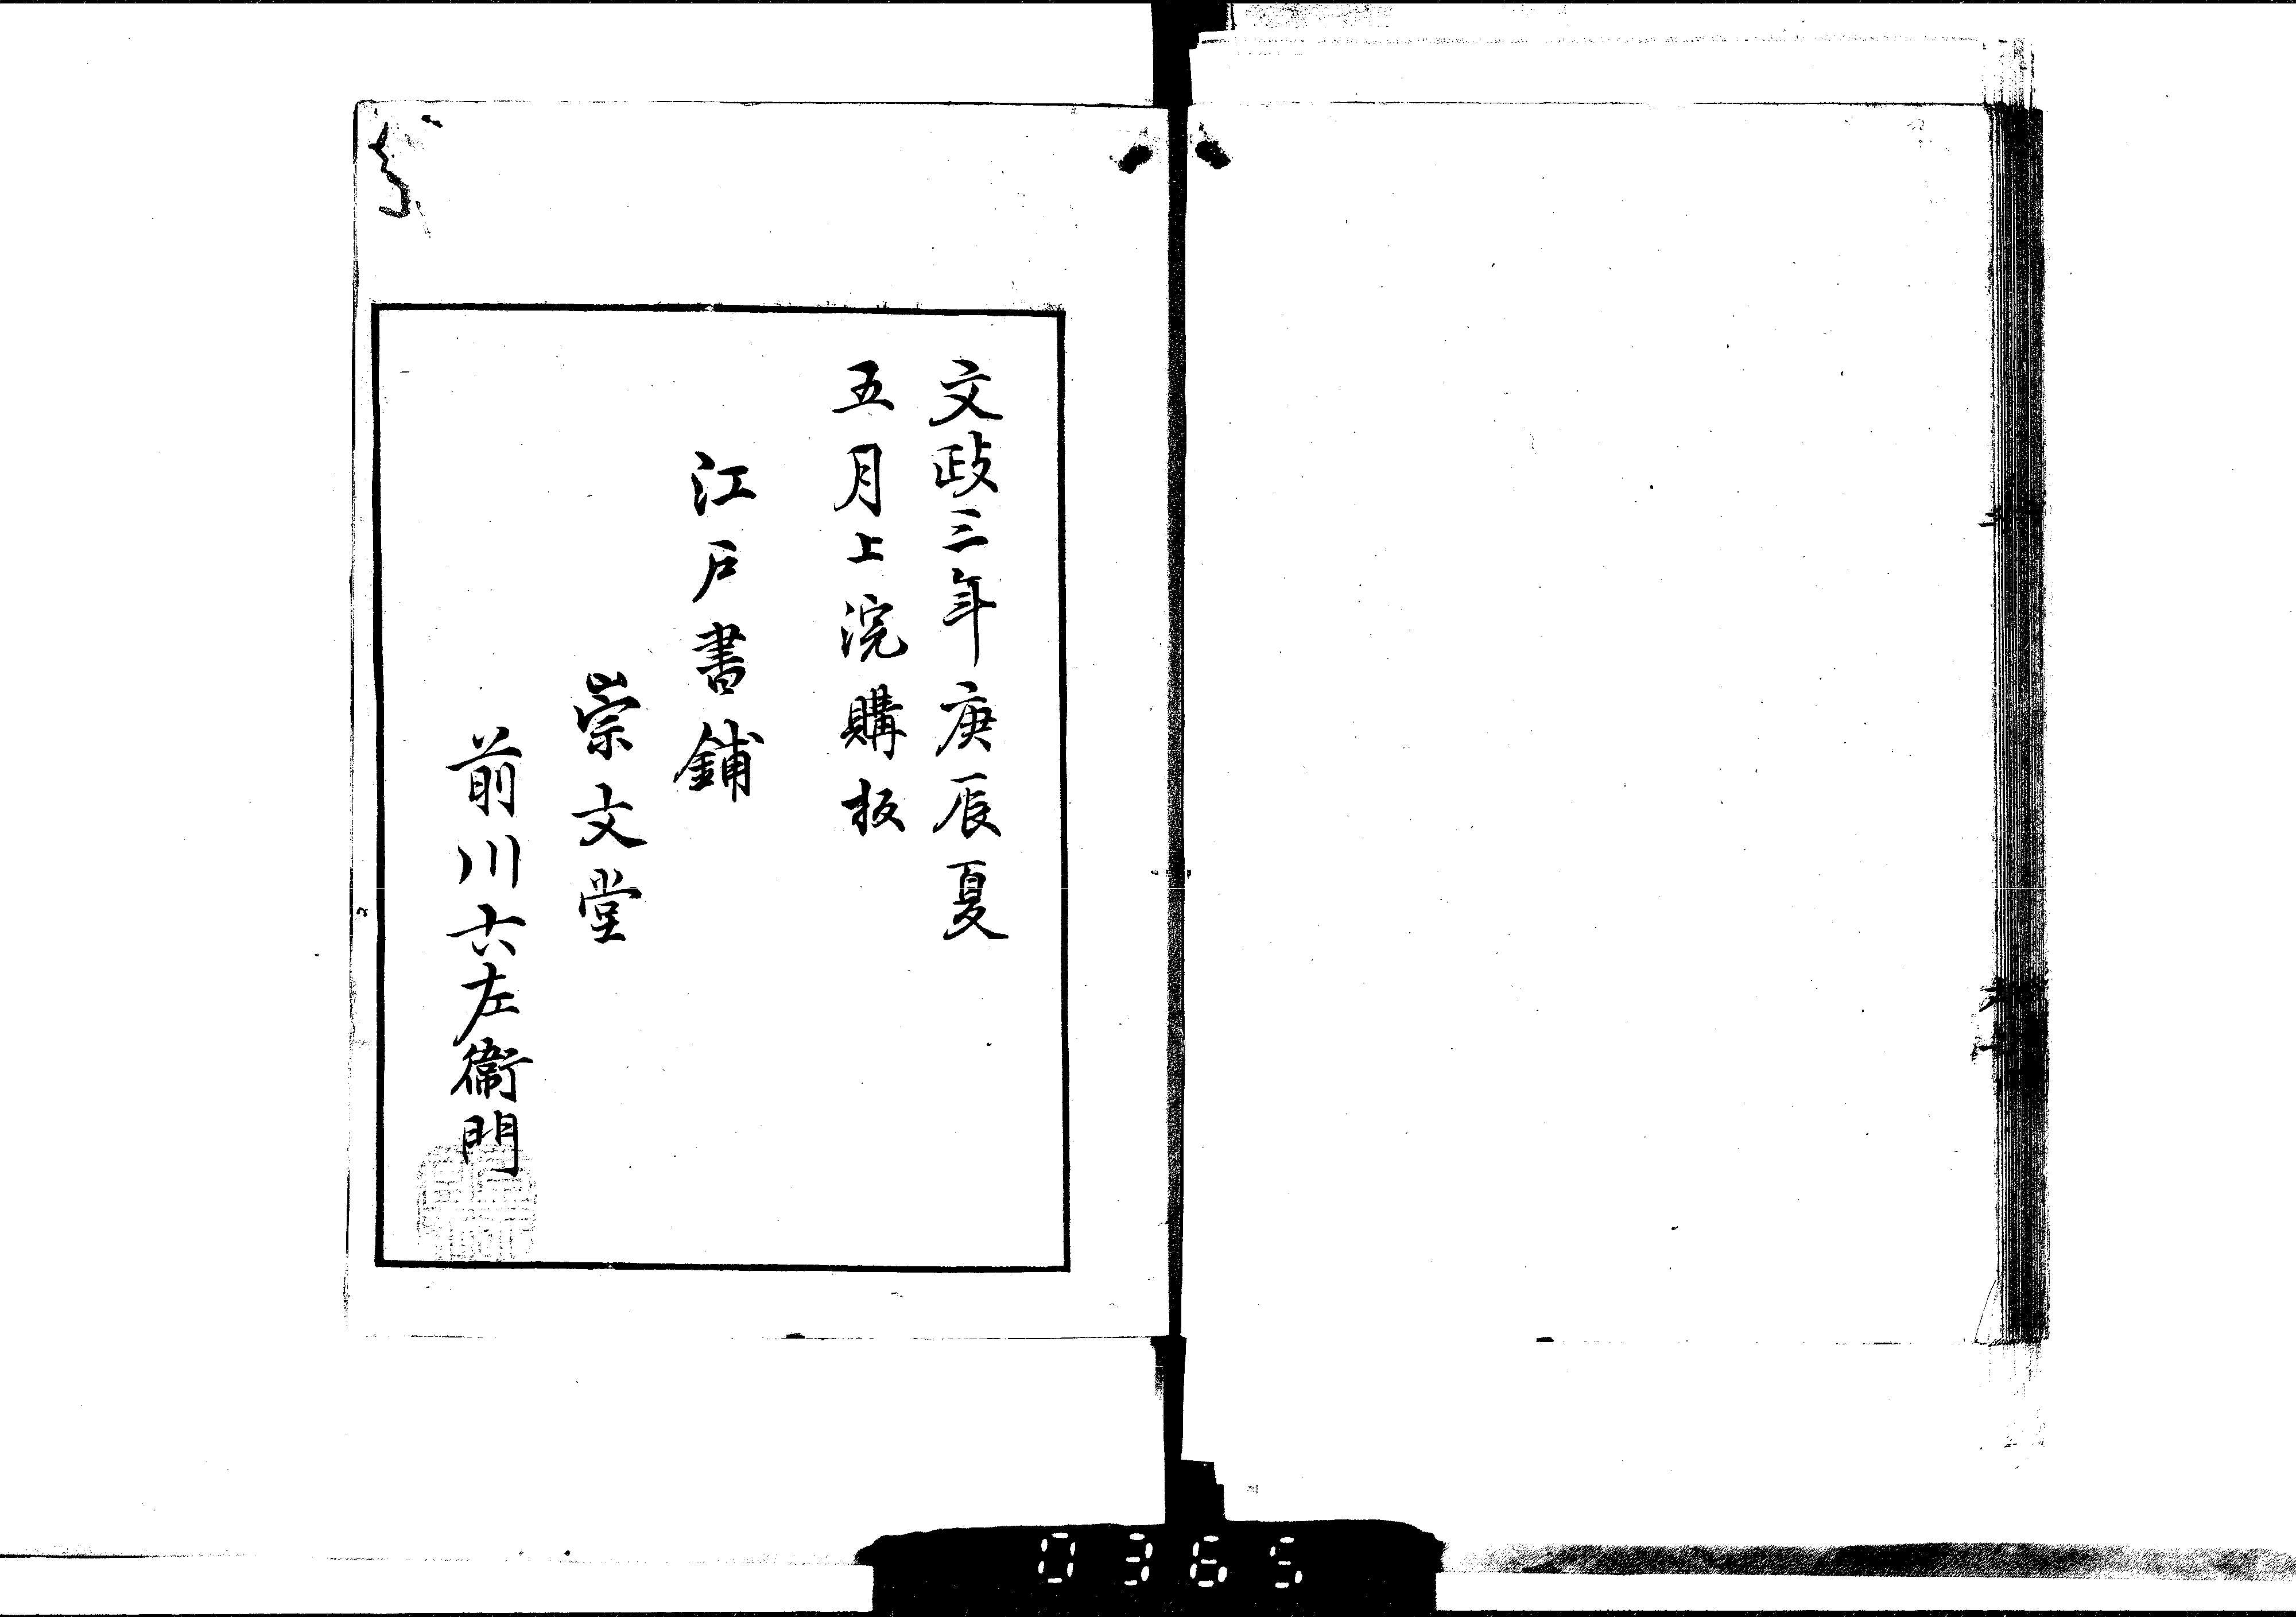 文政三年庚辰夏
五月上浣購板
江戸書鋪
崇文堂
前川六左衞門
0365